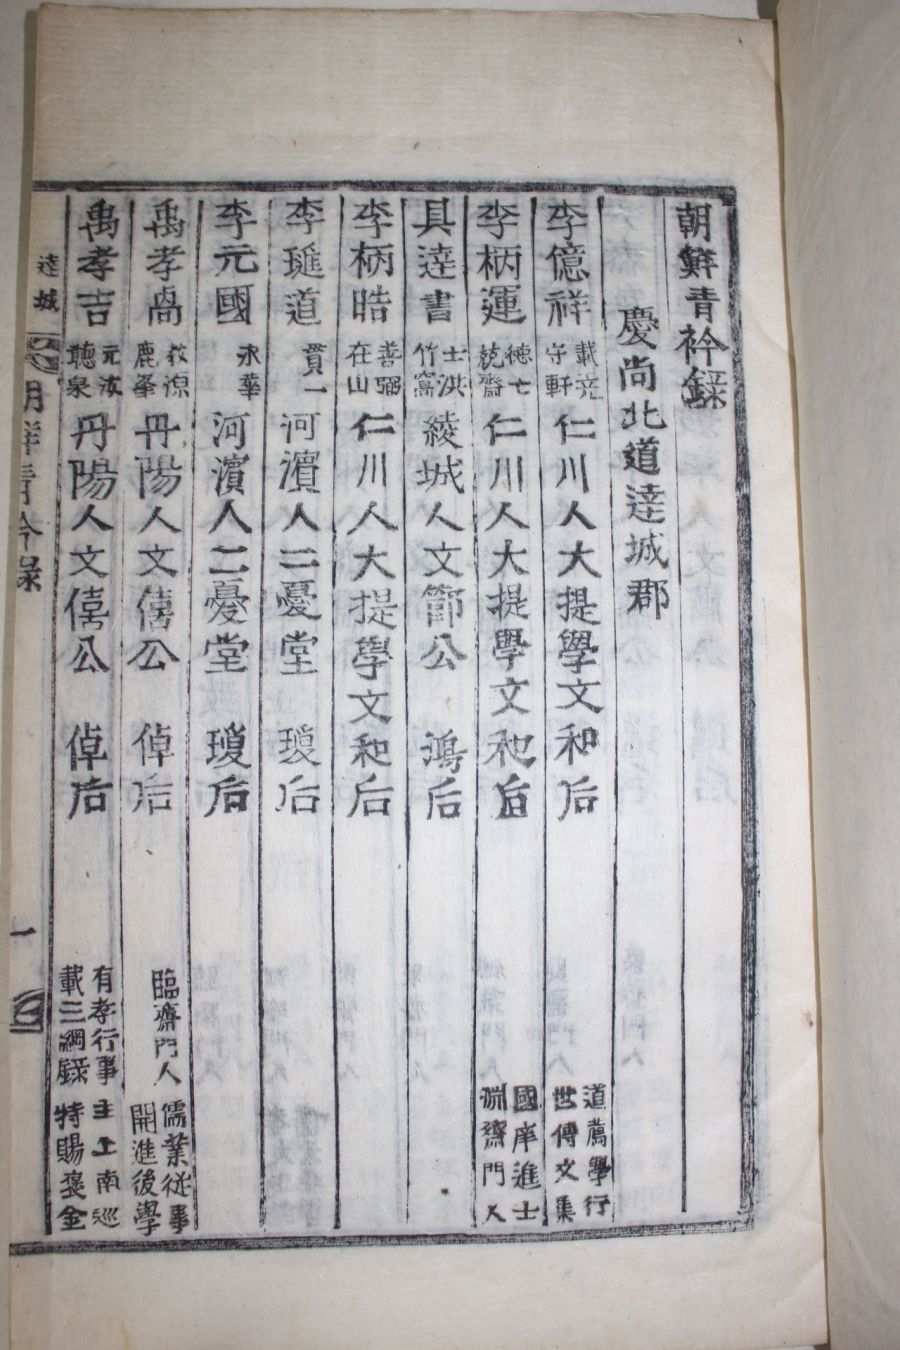 朝鮮青衿錄
慶尚北道達城郡
李億祥 載堯 守軒 仁川人大提學文和后 道薦學行 世傳文集
李柄運 德七 兢齋 仁川人大提學文和后 國庠進士 淵齋門人
具達書 士洪 竹窩 綾城人文節公 鴻后
李柄晧 善弼 在山 仁川人大提學文和后
李璡道 貫一 河濱人二憂堂 瓊后
李元國 永華 河濱人二憂堂 瓊后
禹孝卨 敎源 鹿峯 丹陽人文僖公 倬后 臨齋門人 儒業從事 開進後學
禹孝吉 元汝 聽泉 丹陽人文僖公 倬后 有孝行事 載三綱錄 主上南巡 特賜褒金
達城 朝鮮青衿錄 一